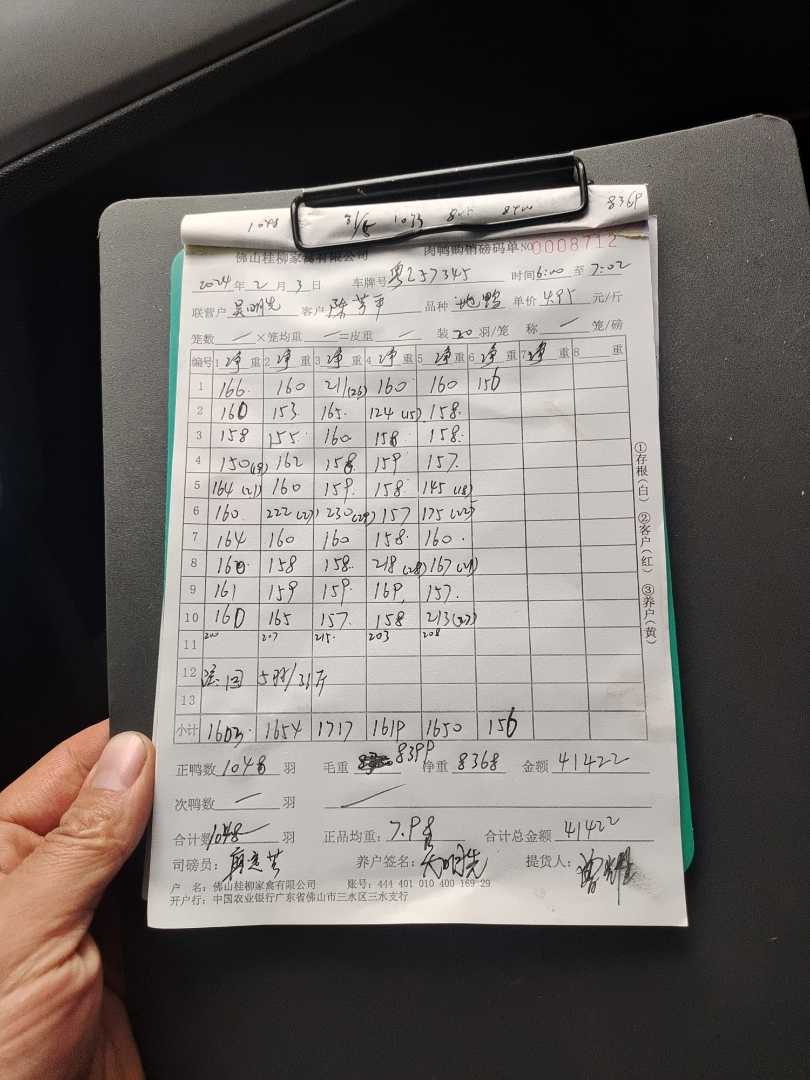 1048 1093 836P
佛山桂柳家禽有限公司 肉鸭购销磅码单 NO 0008712
2024 年 2 月 3 日 车牌号 粤Z57345 时间 6:00 至 7:02
联营户 吴明先 客户 陈芳平 品种 单价 4.95 元/斤
笼数 — ×笼均重 — =皮重 — 装 20 羽/笼 称 — 笼/磅
编号 1 净 重 2 净 重 3 净 重 4 净 重 5 净 重 6 净 重 7 净 重 8 重
1 166 160 211(26) 160 160 156
2 160 153 165 124(15) 158
3 158 155 160 158 158
4 150(19) 162 158 159 157
5 164(21) 160 159 158 145(18)
6 160 222(27) 230(29) 157 175(22)
7 164 160 160 158 160
8 160 158 158 218(28) 167(21)
9 161 159 159 169 157
10 160 165 157 158 213(27)
11 200 207 215 203 208
12 5羽/31斤
13
小计 1603 1654 1717 1619 1650 156
正鸭数 1048 羽 毛重 8399 净重 8368 金额 41422
次鸭数 — 羽
合计数 1048 羽 正品均重: 7.98 合计总金额 41422
司磅员: 养户签名: 吴明先 提货人:
户 名: 佛山桂柳家禽有限公司 账号: 444 401 010 400 169 29
开户行: 中国农业银行广东省佛山市三水区三水支行
①存根(白) ②客户(红) ③养户(黄)